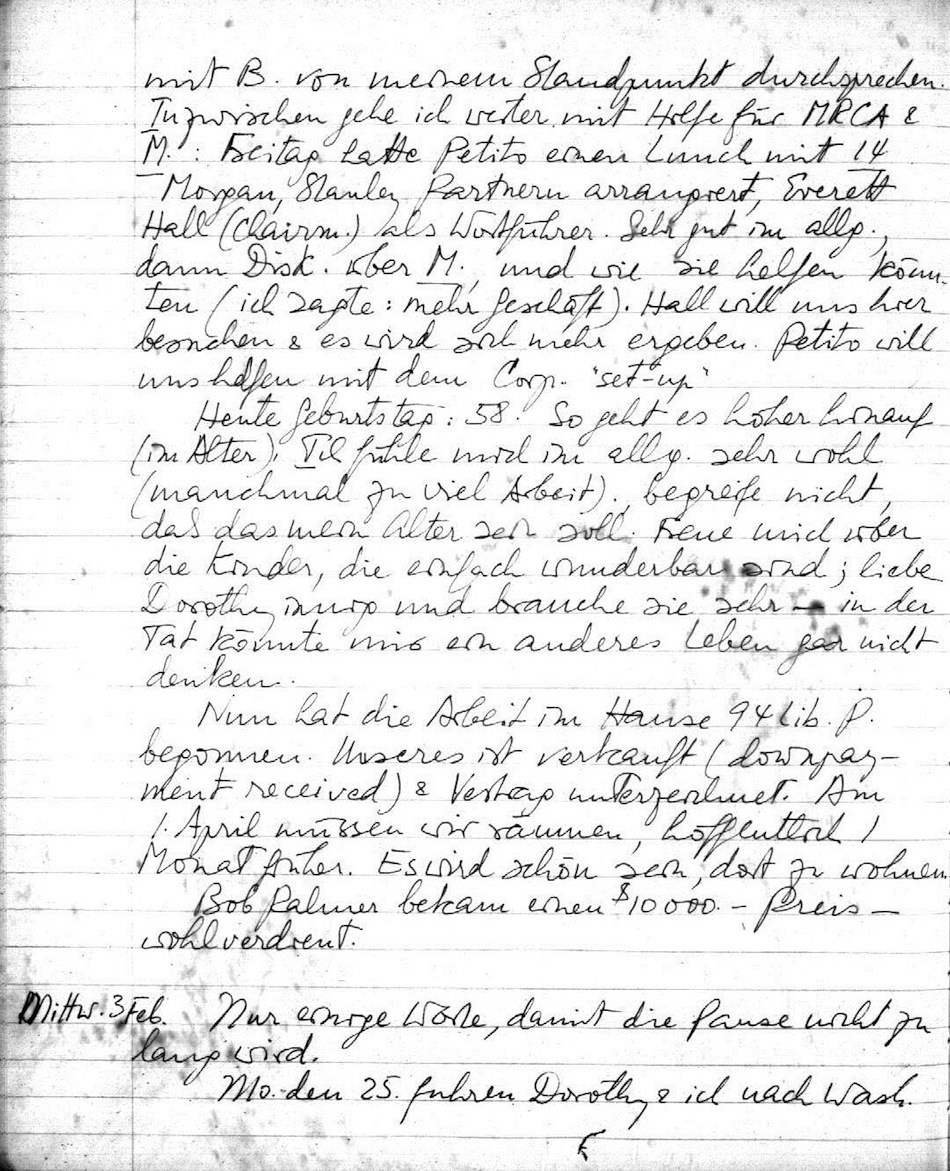 mit B. von meinem Standpunkt durchsprechen.
Inzwischen gehe ich weiter mit Hilfe für MRCA &
M. : Freitag hatte Petito einen Lunch mit 14
Morgan, Stanley Partnern arrangiert, Everett
Hall (Chairm.) als Wortführer. Sehr gut im allg.,
dann Disk. über M., und wie sie helfen könn-
ten (ich sagte: mehr Geschäft). Hall will uns hier
besuchen & es wird sich mehr ergeben. Petito will
uns helfen mit dem Corp. "set-up"
Heute Geburtstag: 58. So geht es höher hinauf
(im Alter). Ich fühle mich im allg. sehr wohl
(manchmal zu viel Arbeit), begreife nicht,
daß das mein Alter sein soll. Freue mich über
die Kinder, die einfach wunderbar sind; liebe
Dorothy innig und brauche sie sehr – in der
Tat könnte mir ein anderes Leben gar nicht
denken.
Nun hat die Arbeit im Hause 94 Lib. P.
begonnen. Unseres ist verkauft (downpay-
ment received) & Vertrag unterzeichnet. Am
1. April müssen wir räumen, hoffentlich 1
Monat früher. Es wird schön sein, dort zu wohnen
Bob Palmer bekam einen $10000.– Preis –
wohlverdient.
Mittw. 3 Feb. Nur einige Worte, damit die Pause nicht zu
lang wird.
Mo. den 25. fuhren Dorothy & ich nach Wash.